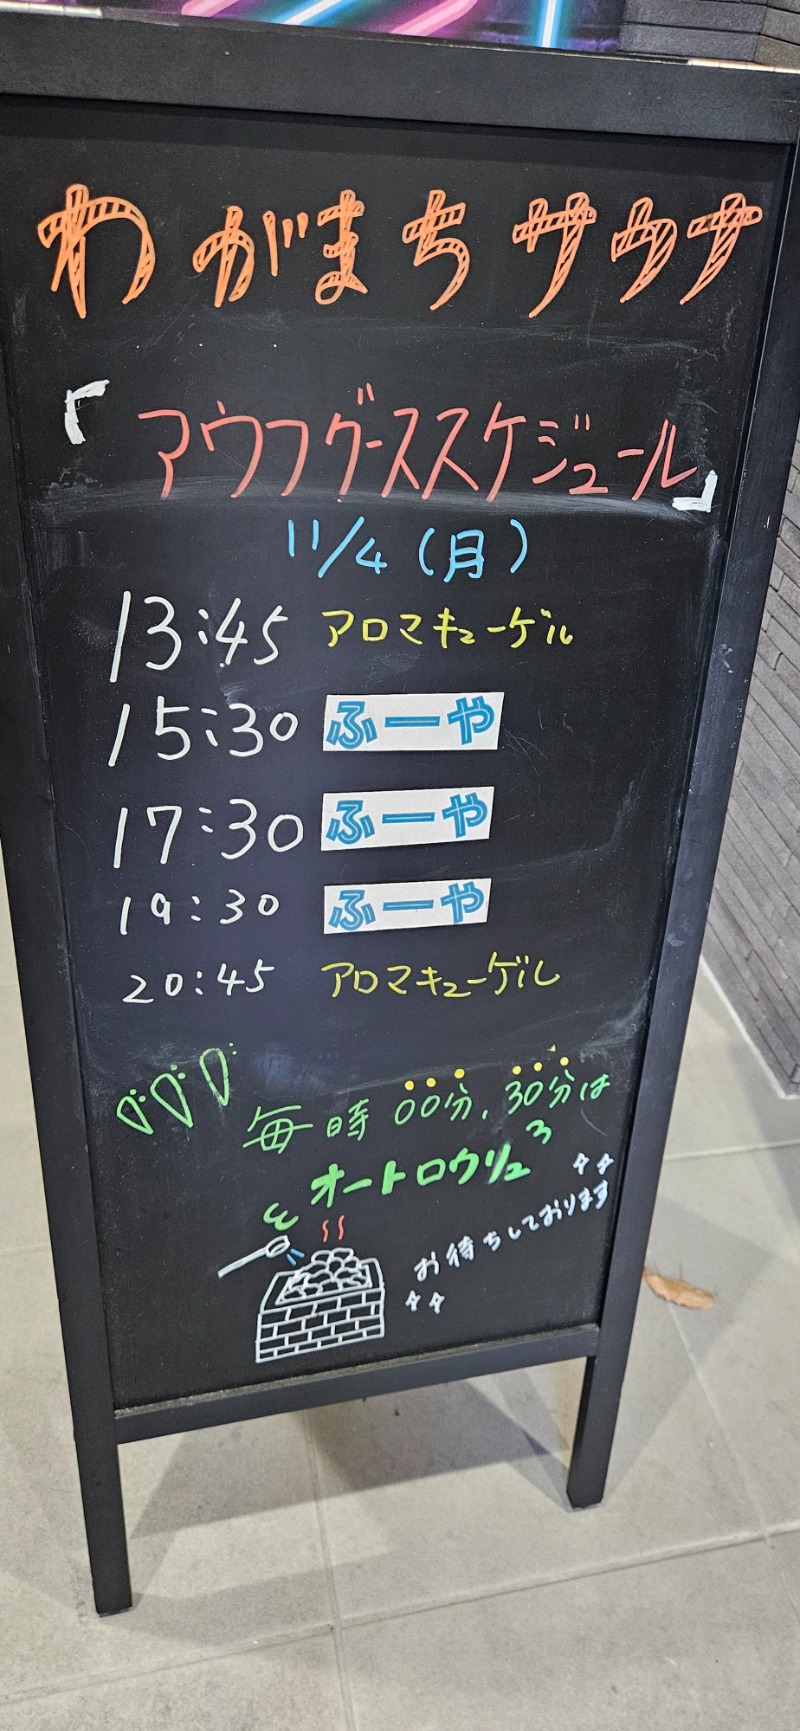 わがまちサウナ
「アウフグーススケジュール」
11/4(月)
13:45 アロマキューゲル
15:30 ふーや
17:30 ふーや
19:30 ふーや
20:45 アロマキューゲル
毎時 00分、30分は
オートロウリュ
お待ちしております